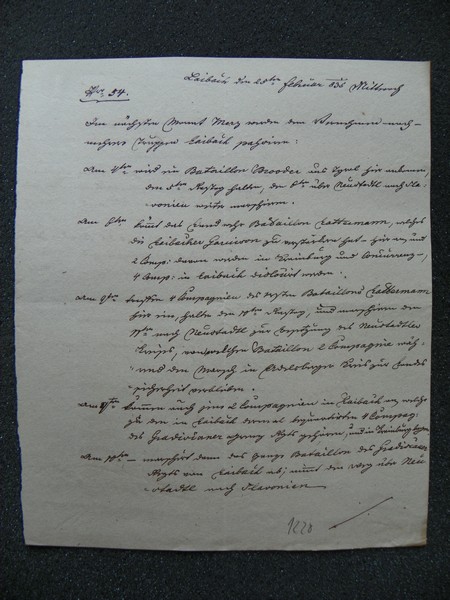 Laibach den 28ten Februar 835 Mittwoch
No. 54.
Im nächsten Monat Merz werden dem Vernehmen nach
mehrere Truppen Laibach passiren:
Am 4ten wird ein Bataillon aus hier ankommen,
den 5ten Rasttag halten, den 6ten über Neustadtl nach Sla-
vonien weiter marschiren.
Am 6ten kömt das Landwehr Bataillon Lattermann, welches
die Laibacher Garnison zu verstärken hat hier an, und
2 Comp: davon werden in Krainburg und
4 Comp: in Laibach dislocirt werden.
Am 9ten treffen 4 Compagnien des ersten Bataillons Lattermann
hier ein, halten den 10ten Rasttag, und marschiren den
11ten nach Neustadtl zur Besetzung des Neustadtler
Kreises, von welchem Bataillon 2 Compagnie wäh-
rend dem Marsch im Adelsberger Kreis zur Landes-
sicherheit verbleiben.
kommen auch jene 2 Compagnien in Laibach an, welche
zu den in Laibach dermal 4 Compag:
des Gradiscaner Regts gehören, und in Krainburg
Am marschirt dann das ganze Bataillon des Gradiscaner
Regts von Laibach ab; nimmt den Weg über Neu-
stadtl nach Slavonien
1220